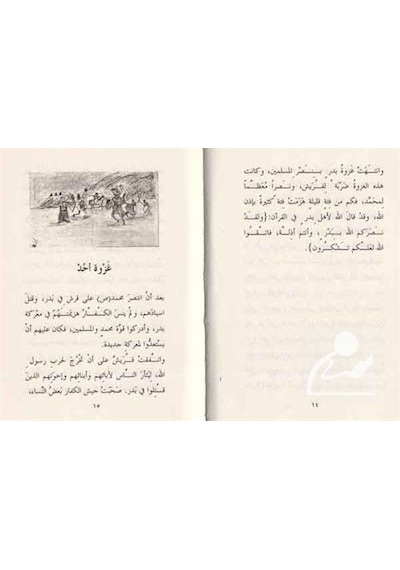 وانتهَتْ غَزوةُ بدرٍ بِنَصرِ المسلمين، وكانت
هذه الغزوةُ ضَربَةً لِقُرَيش، ونَصراً مُعظَّماً
لمحمَّد، فكم من فِئةٍ قليلةٍ هَزَمَتْ فِئةً كثيرةً بإذنِ
الله، وقد قالَ الله لأهلِ بدرٍ في القرآن: {وَلَقدْ
نصَرَكم الله بِبَدْرٍ، وأنتم أذِلَّة، فاتَّقُوا
الله لعَلَّكم تَشْكُرون}.
١٤
غَزْوة أحُدْ
بعد أنْ انتصرَ محمد (ص) على قرش في بَدر، وقتلَ
اسيادَهم، ولم ينسَ الكُفّارُ هزيمَتَهُمْ في معركة
بدر، وأدركوا قوَّةَ محمدٍ والمسلمين، فكان عليهم أنْ
يستعدُّوا لمعركة جديدة.
واتَّفقتْ قُرَيْشٌ على أنْ تَخْرُجَ لحربِ رسولِ
الله، ليَثأرَ النّاس لآبائهم وأبنائهم وإخوَتهم الذينَ
قُتِلوا في بَدر. صَحِبَتْ جيش الكفار بَعضُ النِّساء،
١٥